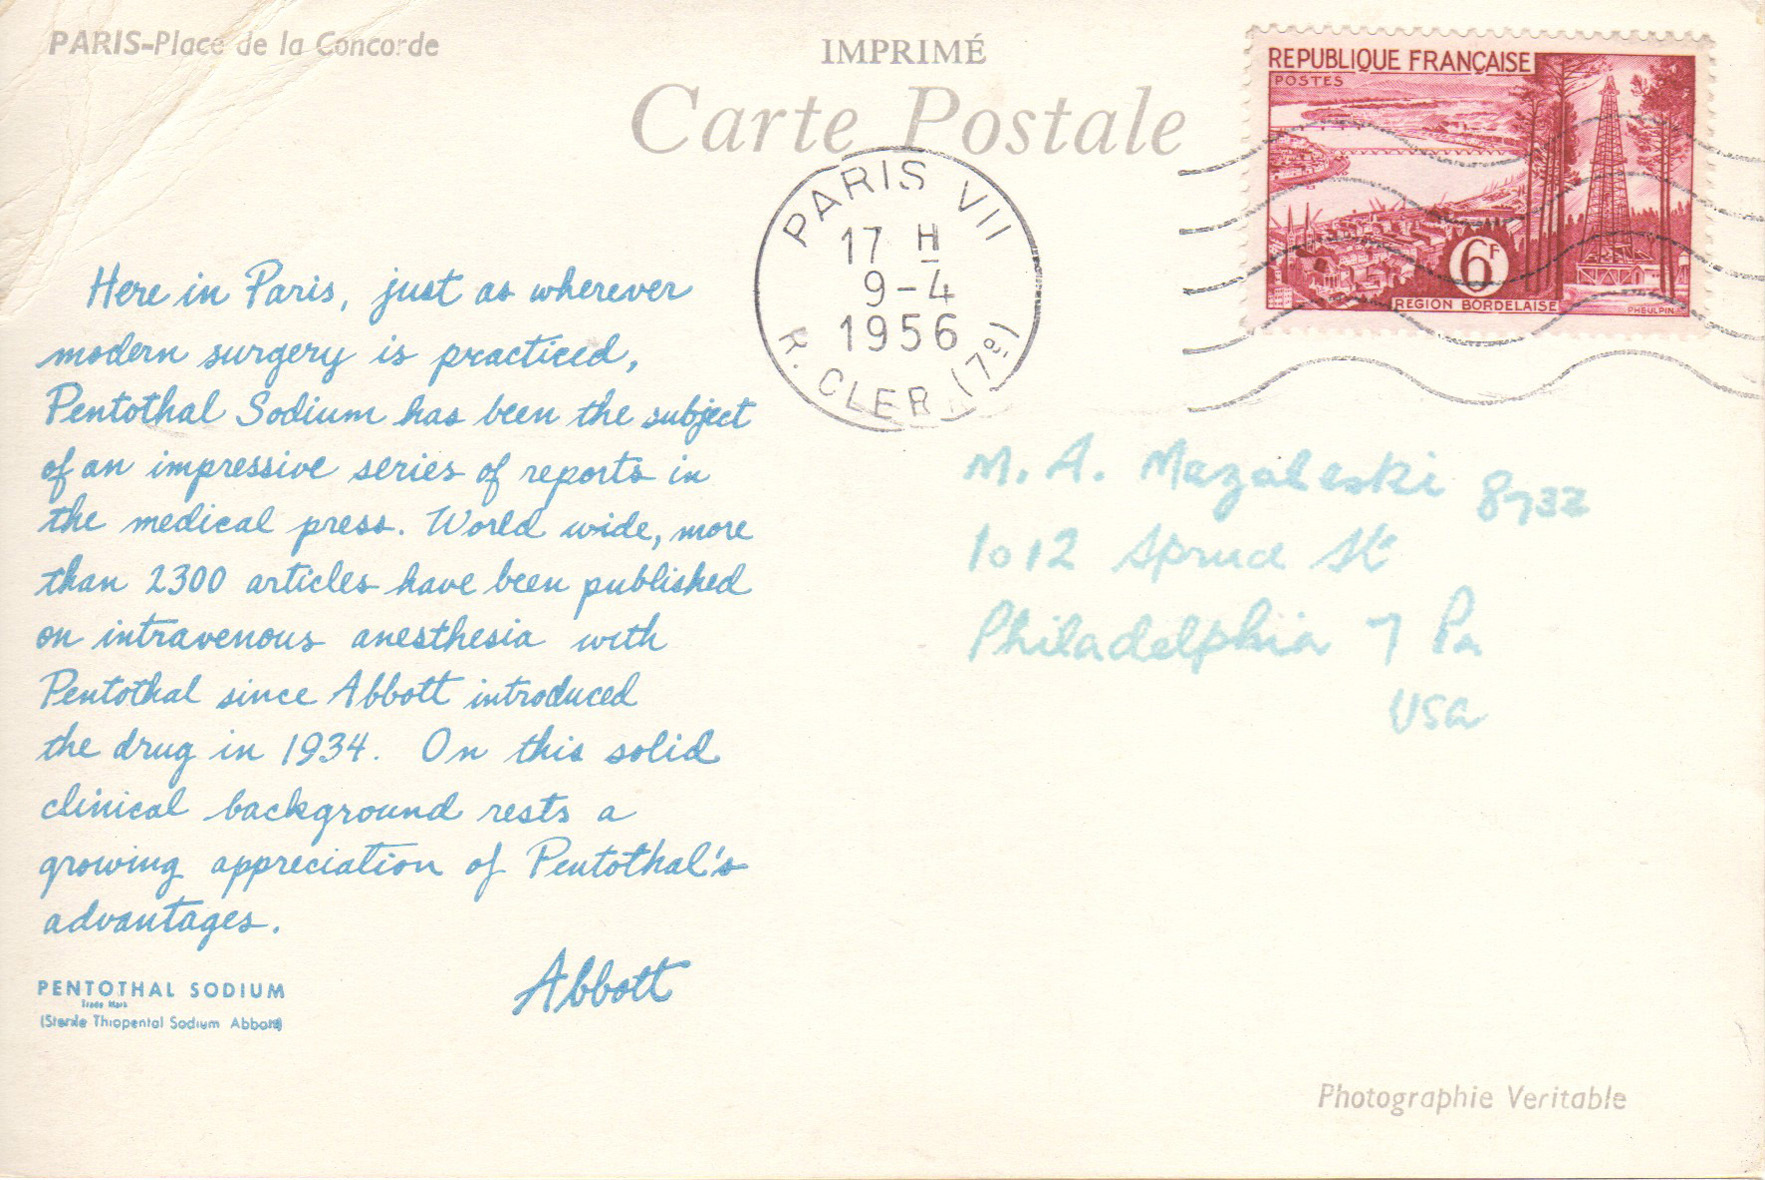 PARIS-Place de la Concorde
IMPRIMÉ
Carte Postale
REPUBLIQUE FRANÇAISE
POSTES
6F
REGION BORDELAISE
PHEULPIN
PARIS VII
17 H
9-4
1956
R. CLER (7e)
Here in Paris, just as wherever
modern surgery is practiced,
Pentothal Sodium has been the subject
of an impressive series of reports in
the medical press. World wide, more
than 2300 articles have been published
on intravenous anesthesia with
Pentothal since Abbott introduced
the drug in 1934. On this solid
clinical background rests a
growing appreciation of Pentothal's
advantages.
Abbott
PENTOTHAL SODIUM
Trade Mark
(Sterile Thiopental Sodium Abbott)
M. A. Mazaleski 8732
1012 Spruce St
Philadelphia 7 Pa
USA
Photographie Veritable